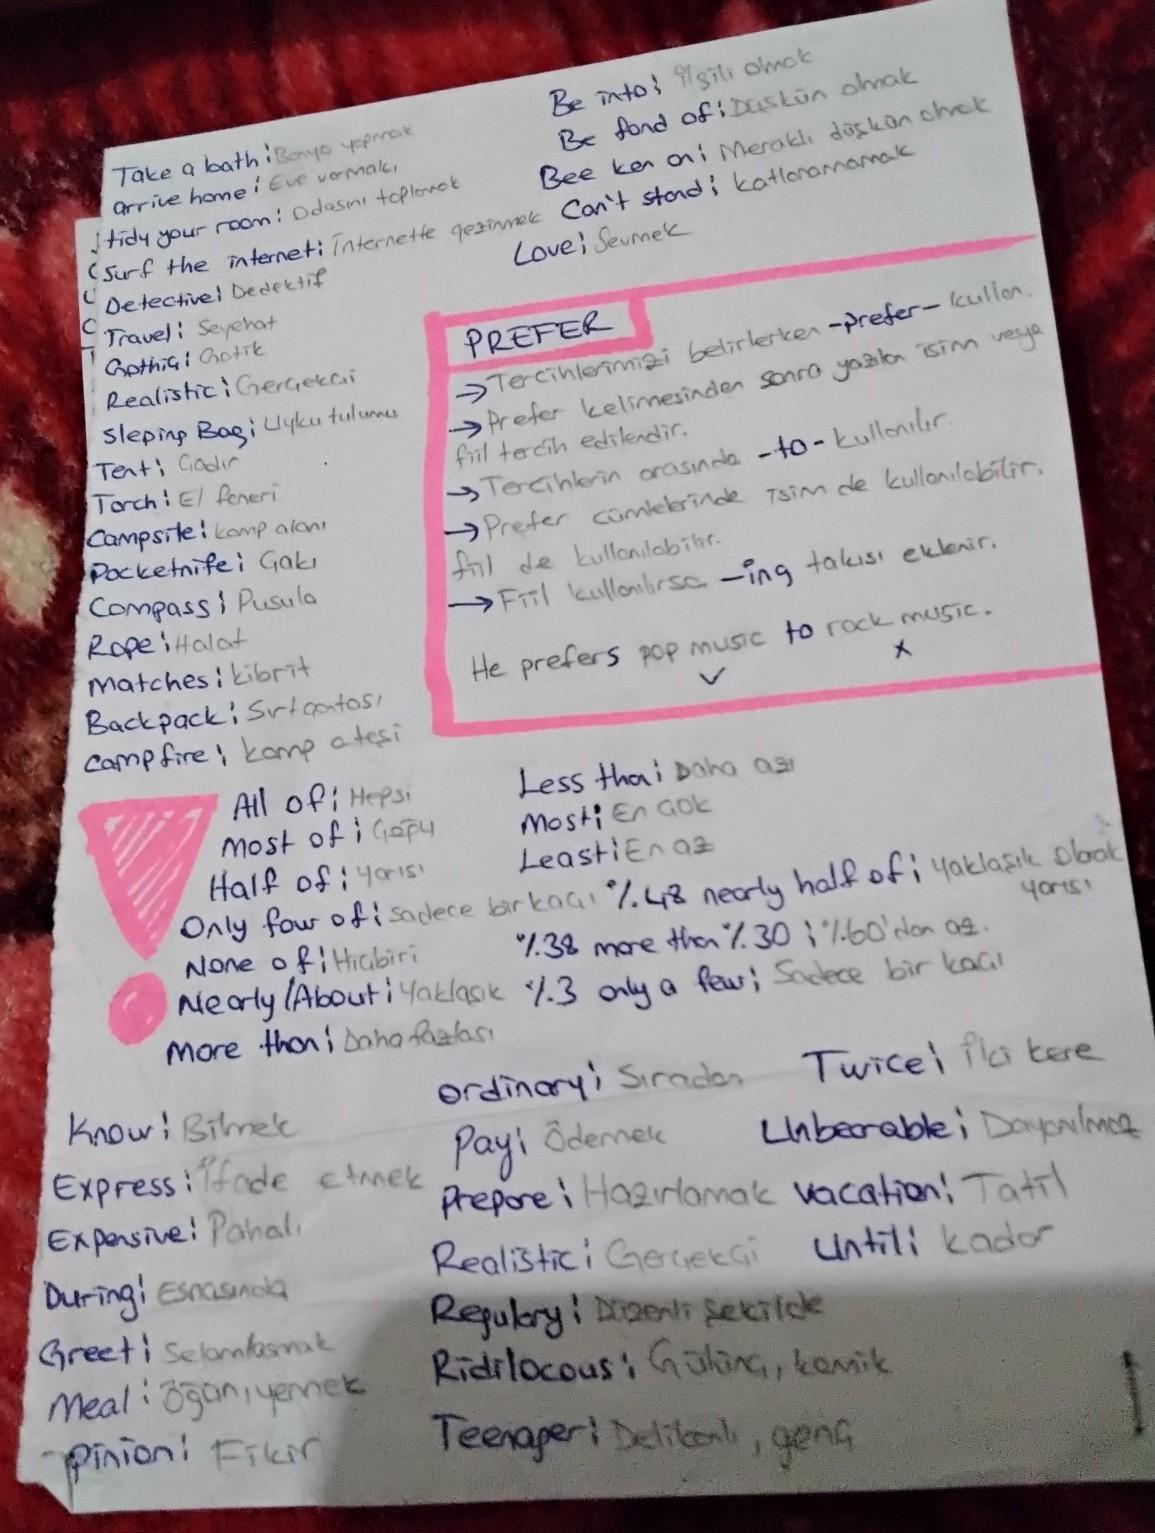 Take a bath: Banyo yapmak
arrive home: Eve varmak,
tidy your room: Odasını toplamak
Surf the internet: İnternette gezinmek
Detective: Dedektif
Travel: Seyehat
Gothic: Gotik
Realistic: Gerçekçi
Sleping Bag: Uyku tulumu
Tent: Çadır
Torch: El feneri
Campsite: kamp alanı
Pocketnife: Çakı
Compass: Pusula
Rope: Halat
Matches: kibrit
Backpack: Sırtçantası
Campfire: kamp ateşi
Be into: ilgili olmak
Be fond of: Düşkün olmak
Bee ken on: Meraklı düşkün olmak
Can't stand: katlanamamak
Love: Sevmek
PREFER
→Tercihlerimizi belirlerken -prefer- kullan.
→Prefer kelimesinden sonra yazılan isim veya
fiil tercih edilendir.
→Tercihlerin arasında -to- kullanılır.
→Prefer cümlelerinde isim de kullanılabilir.
fiil de kullanılabilir.
→Fiil kullanılırsa -ing takısı eklenir.
He prefers pop music to rock music.
✓ x
All of: Hepsi
Most of: Çoğu
Half of: yarısı
Only few of: sadece birkaçı
None of: Hiçbiri
Nearly/About: Yaklaşık
More than: Daha fazlası
Less than: Daha azı
Most: En çok
Least: En az
%48 nearly half of: yaklaşık olarak
yarısı
%38 more than %30: %60'dan az.
%3 only a few: Sadece bir kaçı
Know: Bilmek
Express: İfade etmek
Expensive: Pahalı
During: Esnasında
Greet: Selamlaşmak
Meal: Öğün, yemek
pinion: Fikir
Ordinary: Sıradan
Pay: Ödemek
Prepare: Hazırlamak
Realistic: Gerçekçi
Regulary: Düzenli şekilde
Ridilocous: Gülünç, komik
Teenager: Delikanlı, genç
Twice: İki kere
Unbearable: Dayanılmaz
vacation: Tatil
Until: kadar